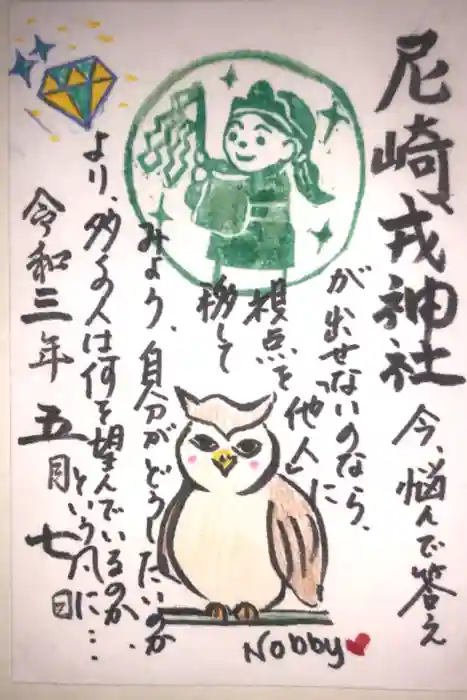 尼崎戎神社
今、悩んで答え
が出せないのなら、
「他人」に
視点を
移して
みよう、自分がどうしたいのか
より、多くの人は何を望んでいるのか、
という風に…
令和三年五月七日
Nobby